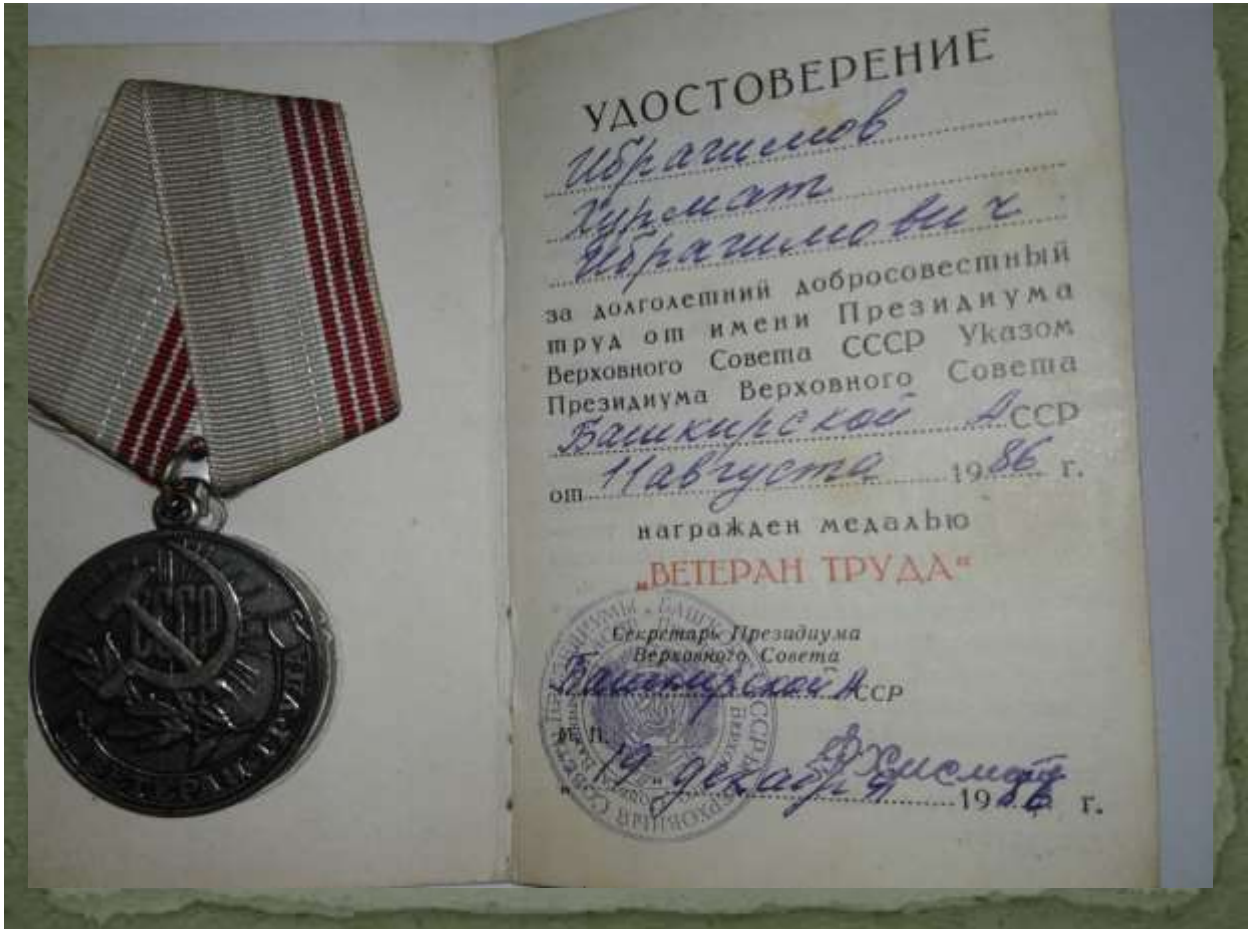 СССР
УДОСТОВЕРЕНИЕ
Ибрагимов
Хурмат
Ибрагимович
за долголетний добросовестный
труд от имени Президиума
Верховного Совета СССР Указом
Президиума Верховного Совета
Башкирской АССР
от 11 августа 1986 г.
награжден медалью
„ВЕТЕРАН ТРУДА“
Секретарь Президиума
Верховного Совета
Башкирской АССР
М. П.
19 декабря 1986 г.